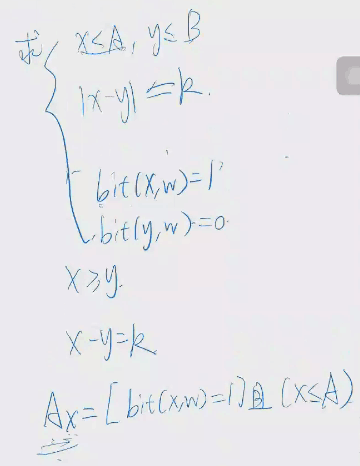 求 x≤A, y≤B
|x-y|=k.
bit(x,w)=1
bit(y,w)=0.
x≥y.
x-y=k
Ax=[bit(x,w)=1]且(x≤A)